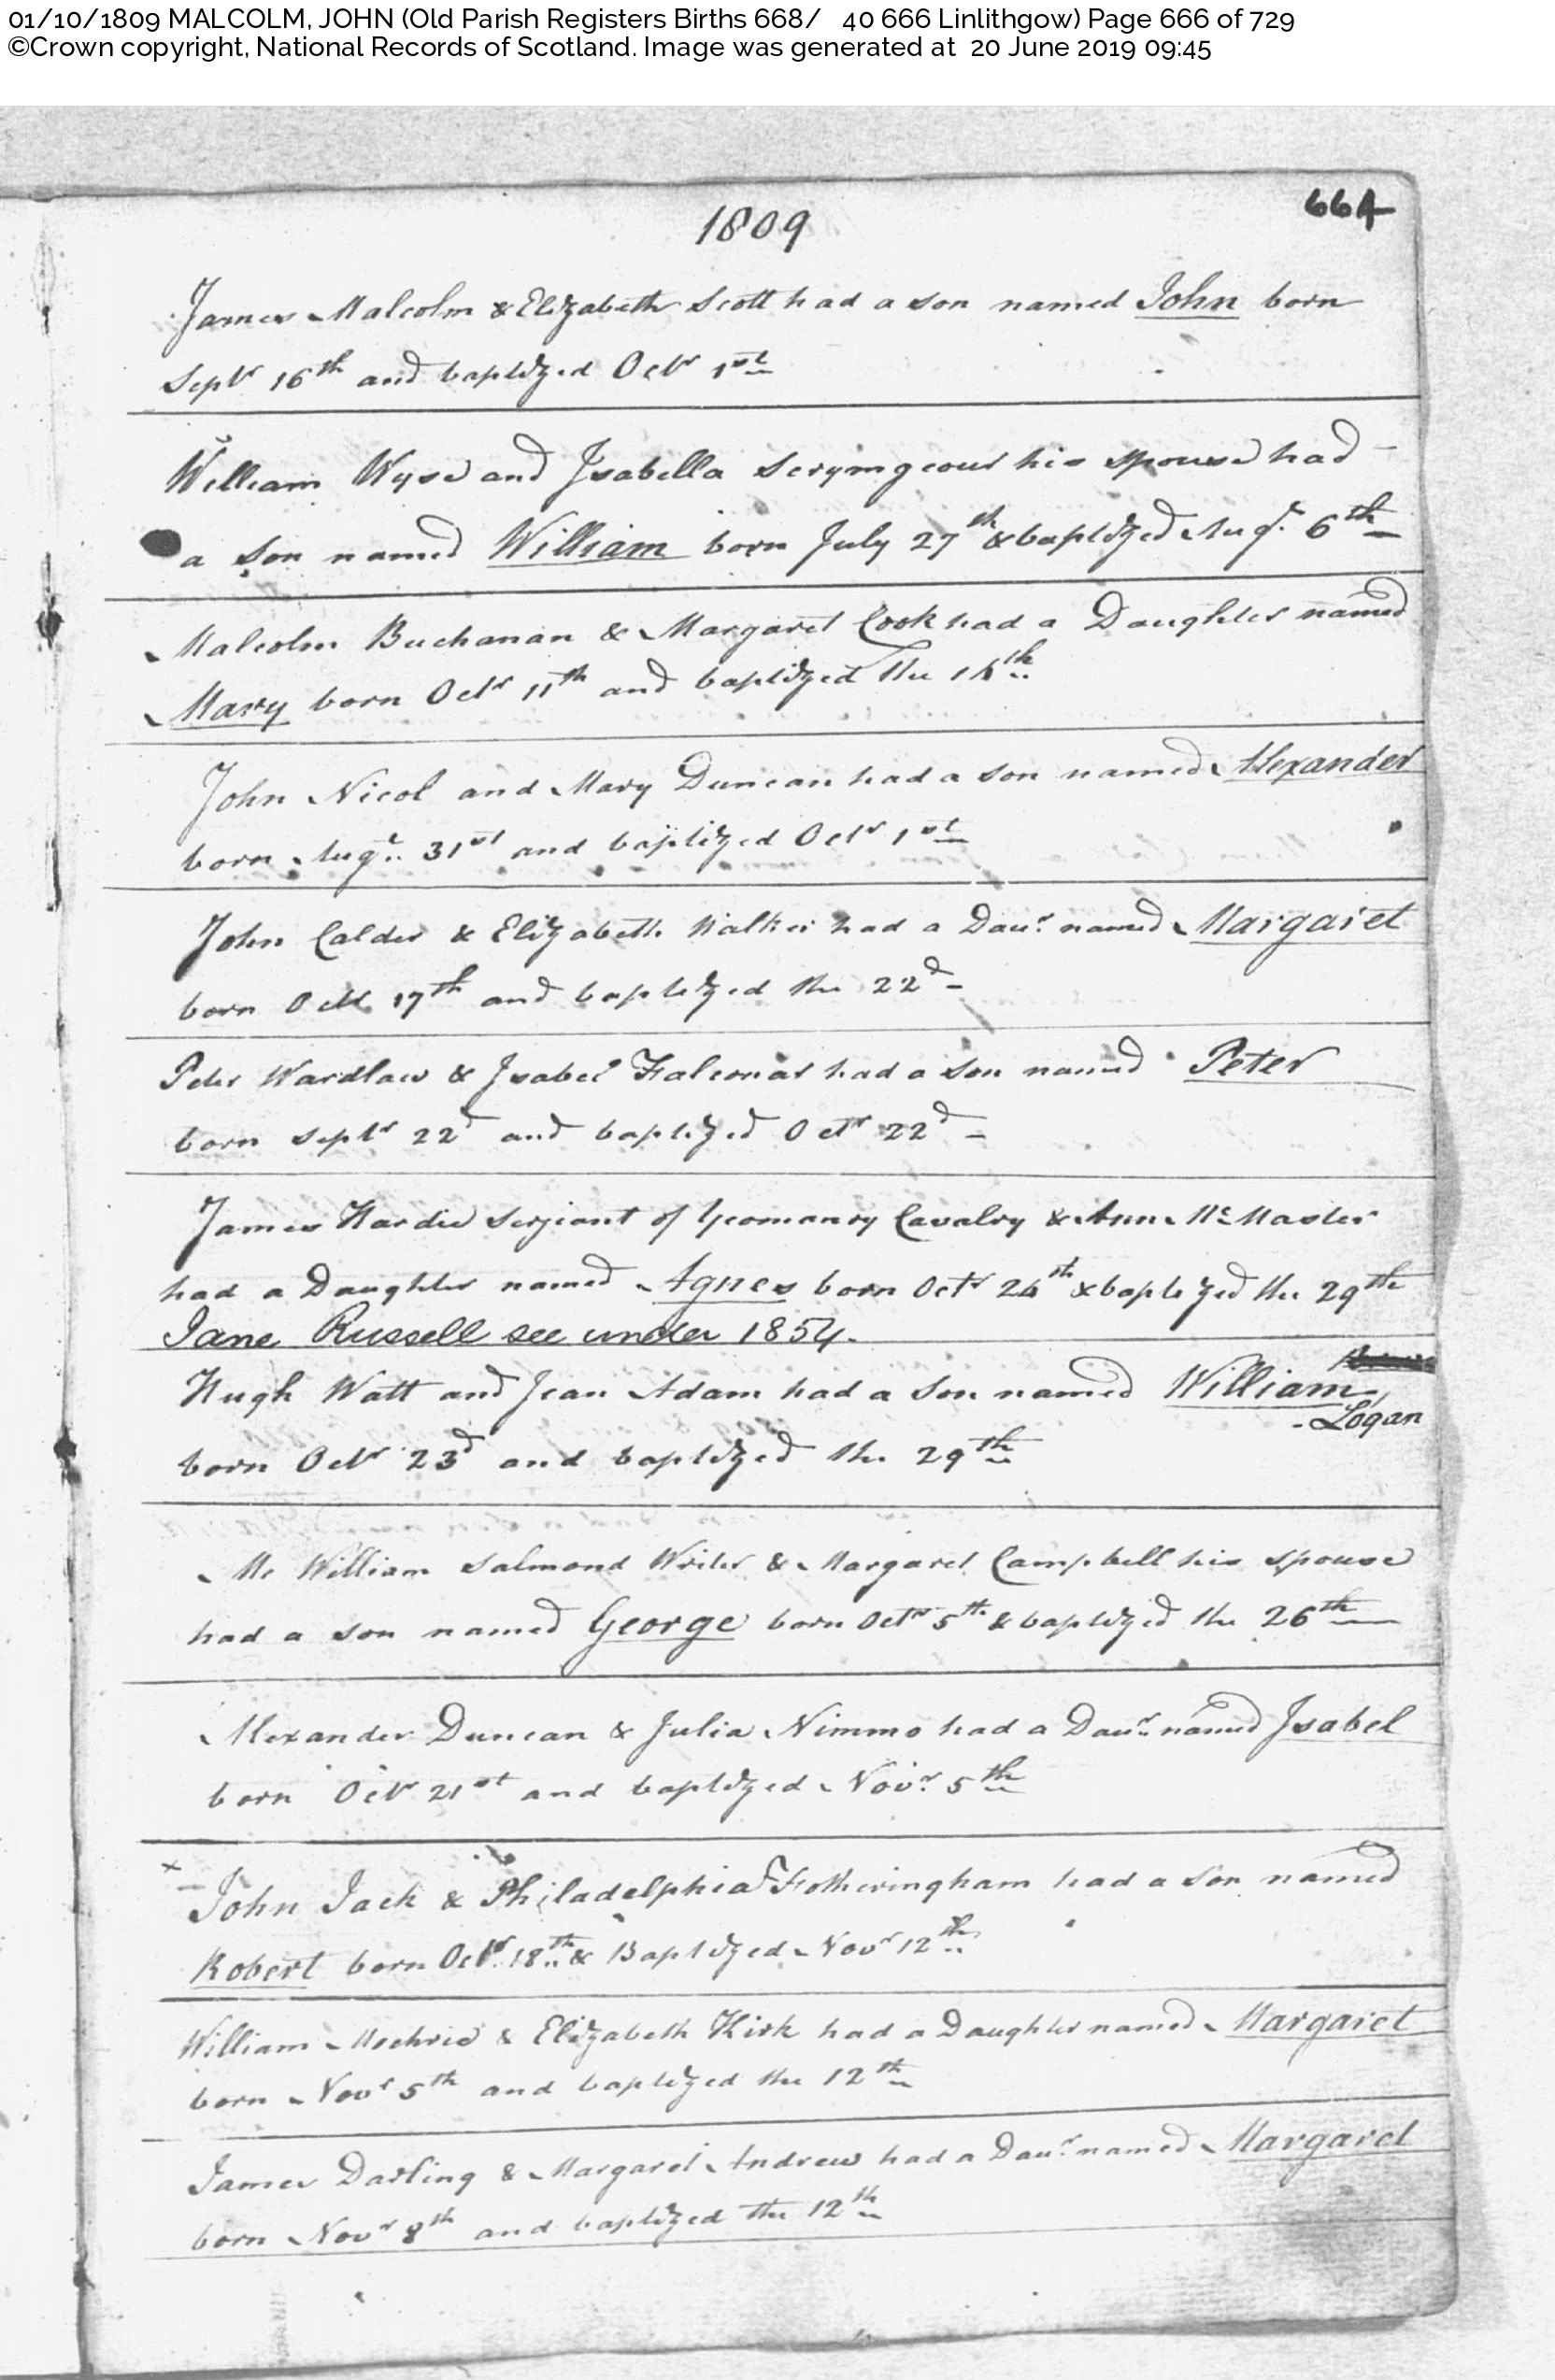 01/10/1809 MALCOLM, JOHN (Old Parish Registers Births 668/ 40 666 Linlithgow) Page 666 of 729
©Crown copyright, National Records of Scotland. Image was generated at 20 June 2019 09:45
664
1809
James Malcolm & Elizabeth Scott had a son named John born
Septr 16th and baptized Octr 1st
William Wyse and Isabella Scrymgeour his spouse had
a son named William born July 27th & baptized Augt. 6th
Malcolm Buchanan & Margaret Cook had a Daughter named
Mary born Octr 11th and baptized the
John Nicol and Mary Duncan had a son named Alexander
born Augt. 31st and baptized Octr 1st
John Calder & Elizabeth Walker had a Daur. named Margaret
born Octr 17th and baptized the 22d
Peter Wardlaw & Isabel Falconar had a son named Peter
born Septr 22d and baptized Octr 22d
James Hardie Serjeant of Yeomanry Cavalry & Ann McMaster
had a Daughter named Agnes born Octr 24th & baptized the 29th
Jane Russell see under 1854.
Hugh Watt and Jean Adam had a son named William
Logan
born Octr 23d and baptized the 29th
Mr William Salmond Writer & Margaret Campbell his spouse
had a son named George born Octr 5th & baptized the 26th
Alexander Duncan & Julia Nimmo had a Daur. named Isabel
born Octr 21st and baptized Novr. 5th
x John Jack & Philadelphia Fotheringham had a son named
Robert born Octr. 18th & Baptized Novr 12th
William Mechrie & Elizabeth Kirk had a Daughter named Margaret
born Novr 5th and baptized the 12th
James Darling & Margaret Andrew had a Daur. named Margaret
born Novr 8th and baptized the 12th